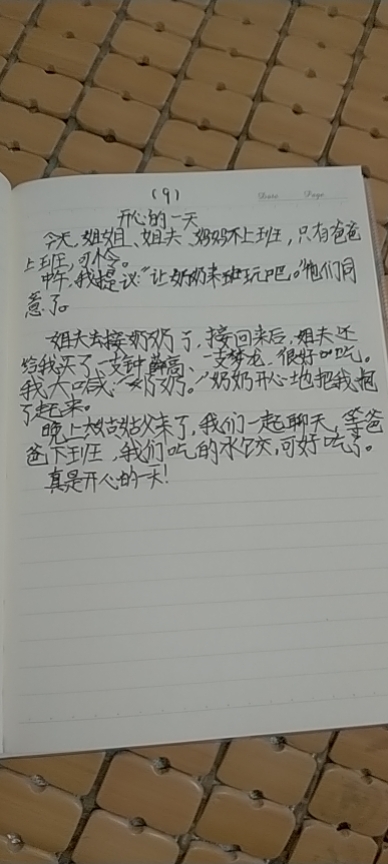 (9)
Date Page
开心的一天
今天,姐姐、姐夫、妈妈不上班,只有爸爸
上班,可怜。
中午,我提议:"让奶奶来班玩吧。"他们同
意了。
姐夫去接奶奶了,接回来后,姐夫还
给我买了一支钟薛高、一支梦龙,很好吃。
我大喊:"奶奶。"奶奶开心地把我抱
了起来。
晚上大姑姑父来了,我们一起聊天,等爸
爸下班,我们吃的水饺,可好吃了。
真是开心的一天!